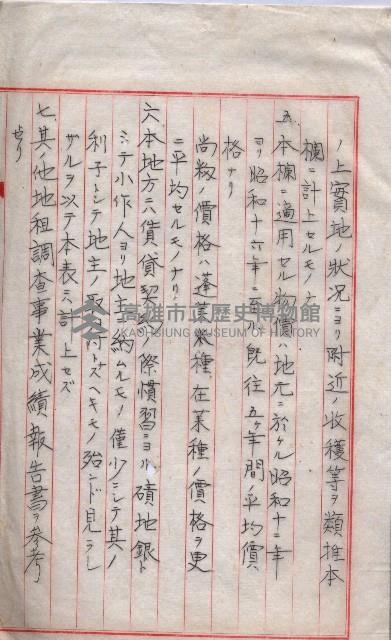 ノ上實地ノ狀況ニヨリ附近ノ收穫等ヲ類推本
欄ニ計上セルモノナリ
五、本欄ニ適用セル物價ハ地元ニ於ケル昭和十二年
ヨリ昭和十六年ニ至ル既往五ヶ年間平均價
格ナリ
尚籾ノ價格ハ蓬萊種、在萊種ノ價格ヲ更
ニ平均セルモノナリ
六、本地方ニハ賃貸契約ノ際慣習ニヨル磧地銀ト
シテ小作人ヨリ地主ニ納ムルモノ僅少ニシテ其ノ
利子トシテ地主ノ取得トスベキモノ殆ンド見ラレ
ザルヲ以テ本表ニ計上セズ
七、其ノ他地租調查事業成績報告書ヲ參考
セリ
高雄市立歷史博物館
KAOHSIUNG MUSEUM OF HISTORY